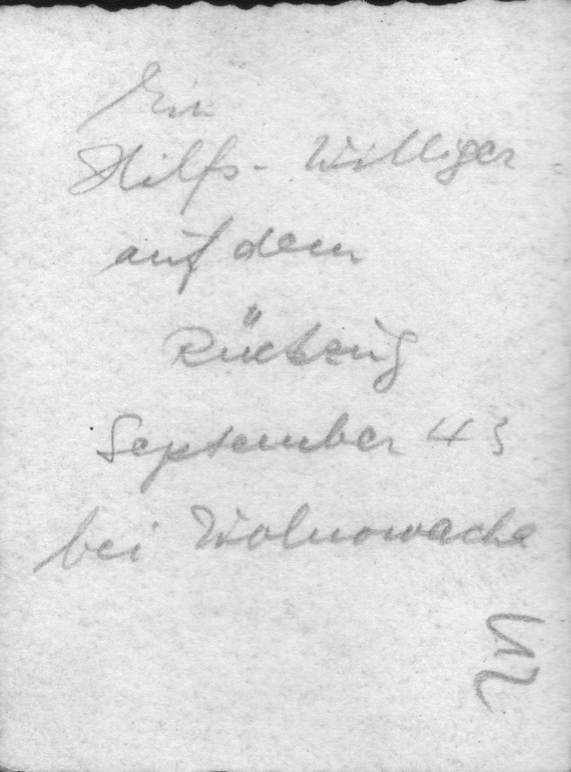 Ein
Hilfs- Williger
auf dem
Rückzug
September 43
bei Wolnowacha